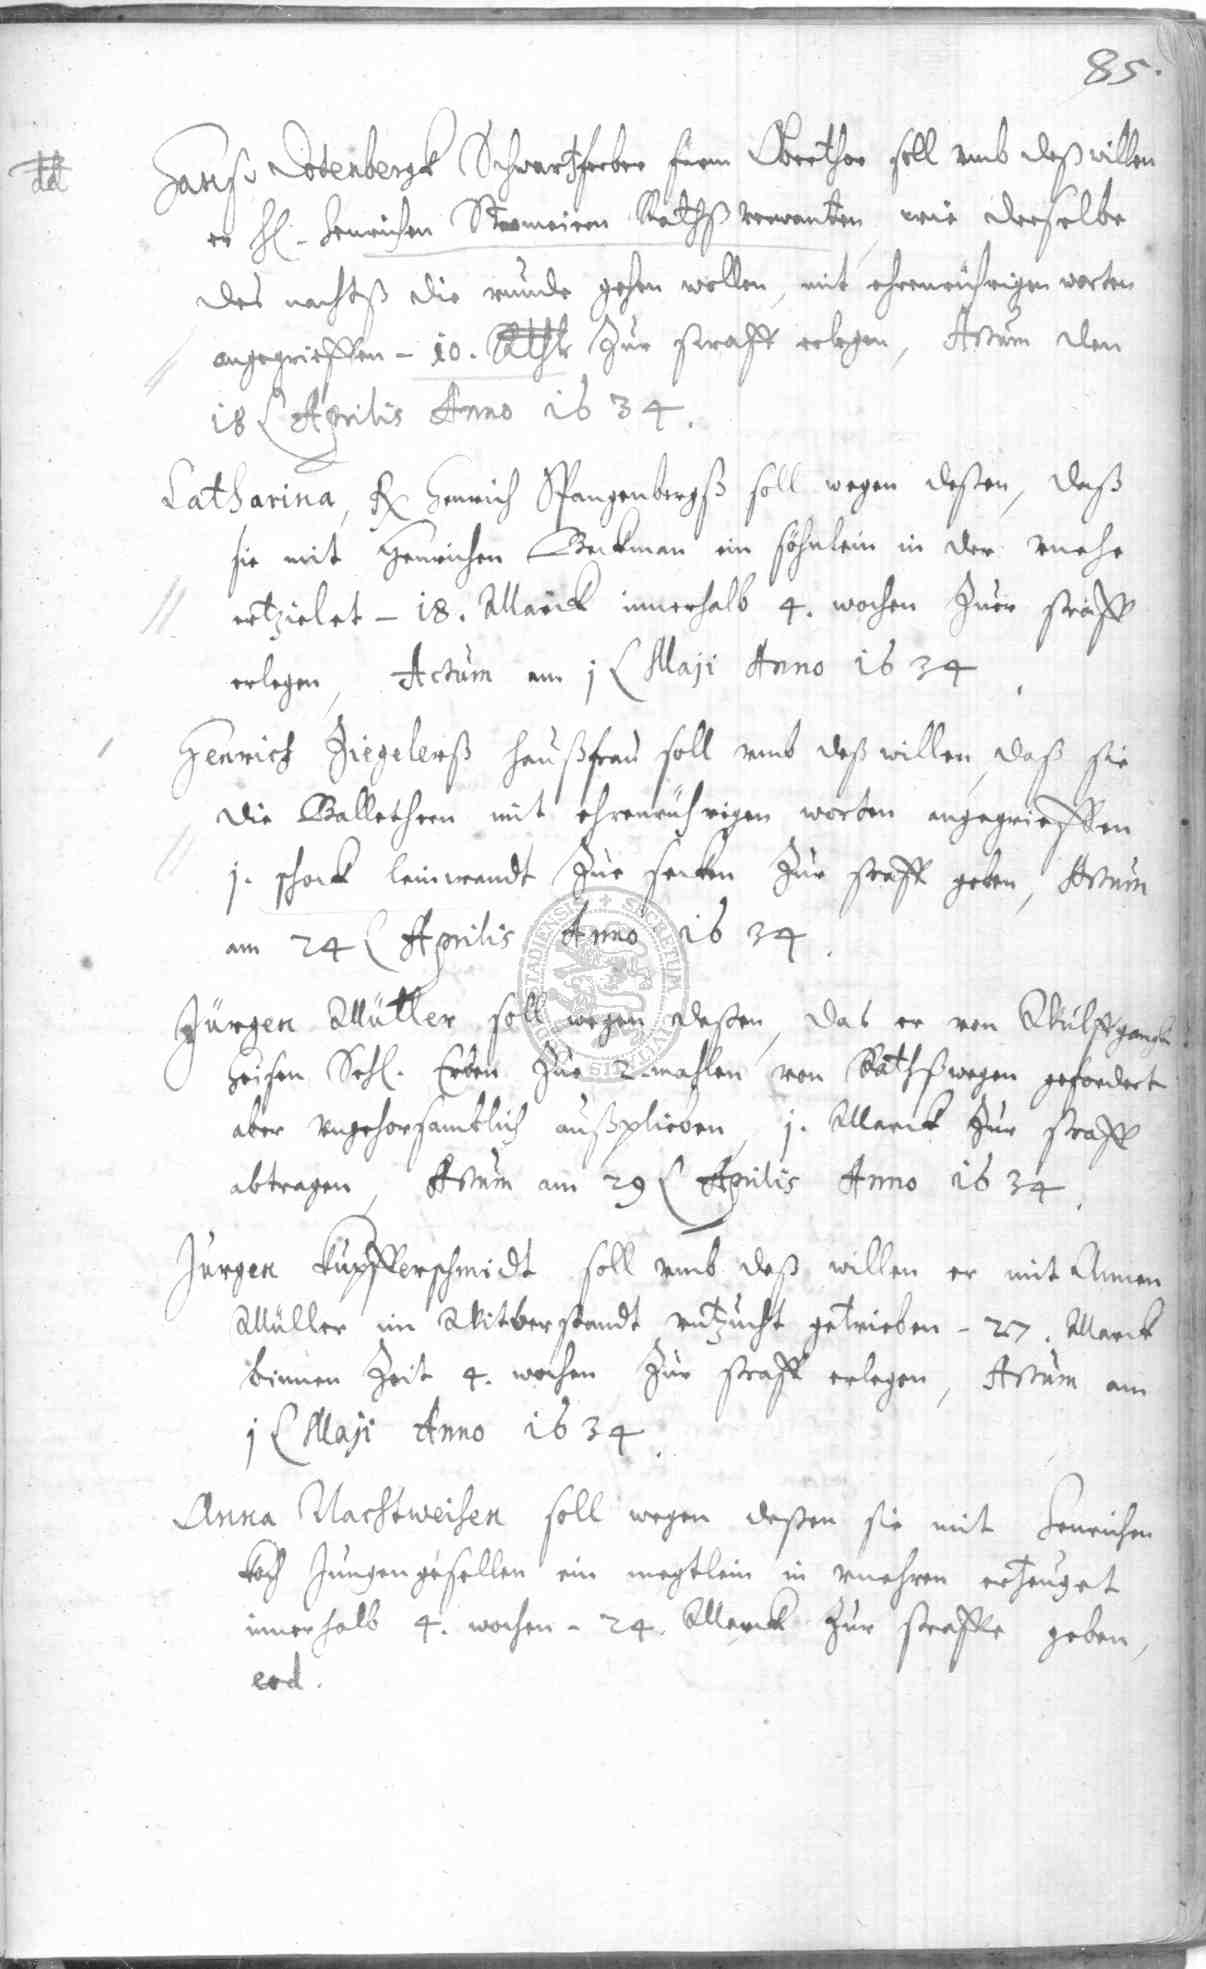 85.
dd
Hanß Dotenbergk Schwartzferber fürm Oberthor soll umb deß willen
er H. Henrichen Stromeiren Rathßverwanten, wie derselbe
des nachtß die runde gehen wollen, mit ehrenrührigen worten
angegrieffen – 10. Rthlr Zur straff erlegen, Actum den
18 Aprilis Anno 1634.
Catharina, Henrich Spangenbergß soll wegen deßen, daß
sie mit Henrichen Beckman ein söhnlein in der unehe
ertzielet – 18. Marck innerhalb 4. wochen Zuer straff
erlegen, Actum am j Maji Anno 1634.
Henrich Ziegelerß haußfraw soll umb deß willen, daß sie
die mit ehrenrührigen worten angegrieffen
j. schock leinwandt Zue secken Zur straff geben, Actum
am 24 Aprilis Anno 1634.
SECRETUM CIVITATIS
Jürgen Müller soll wegen deßen, das er von
Sehl. Erben Zue 2.mahlen von Rathßwegen gefordert
aber ungehorsamblich außplieben, j. Marck Zur straff
abtragen, Actum am 29 Aprilis Anno 1634.
Jürgen Kupfferschmidt soll umb deß willen er mit Annen
Müller im Witberstandt untzucht getrieben – 27. Marck
binnen Zeit 4. wochen Zur straff erlegen, Actum am
j Maji Anno 1634.
Anna Nachtweisen soll wegen deßen sie mit Henrichen
Koch Jungengesellen ein megtlein in unehren erzeuget
innerhalb 4. wochen – 24. Marck Zur straffe geben,
eod.